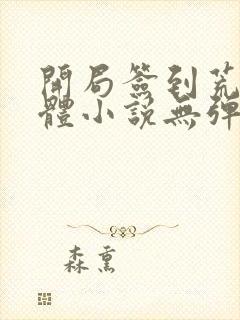 開局簽到荒
體小說無彈
森熏